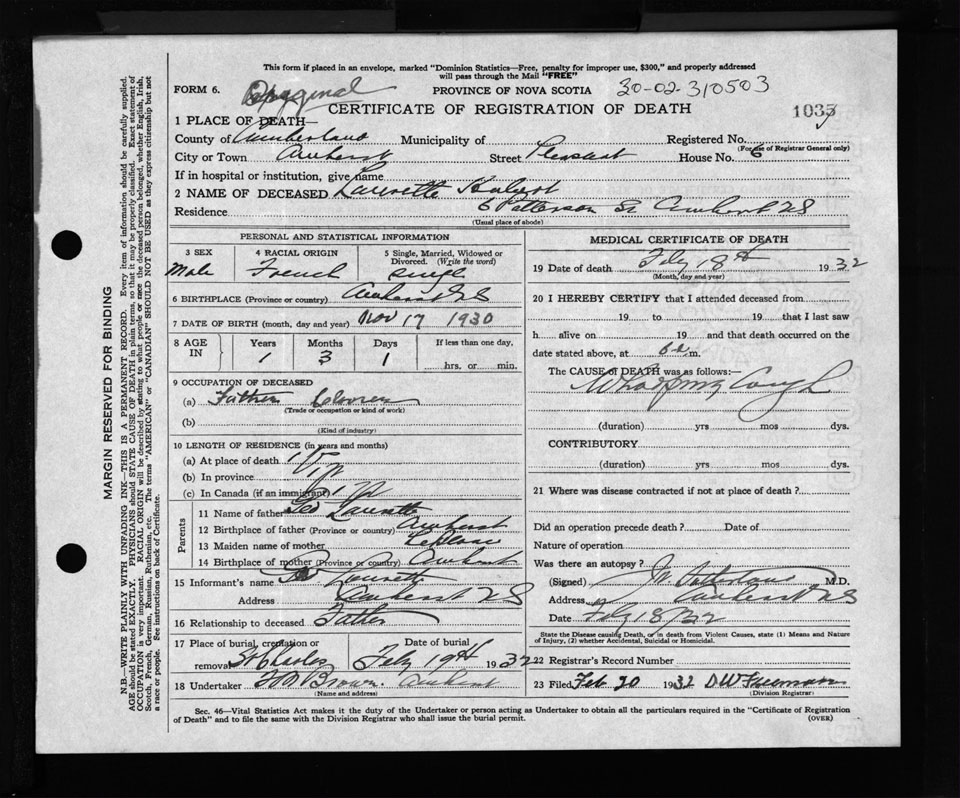 This form if placed in an envelope, marked "Dominion Statistics—Free, penalty for improper use, $300," and properly addressed
will pass through the Mail "FREE"
FORM 6. PROVINCE OF NOVA SCOTIA 30-02-310503
CERTIFICATE OF REGISTRATION OF DEATH 1035
1 PLACE OF DEATH—
County of Cumberland Municipality of Registered No.
(For use of Registrar General only)
City or Town Amherst Street Pleasant House No. 6
If in hospital or institution, give name
2 NAME OF DECEASED Laurette Hubert
Residence 6 Patterson St Amherst NS
(Usual place of abode)
PERSONAL AND STATISTICAL INFORMATION
3 SEX 4 RACIAL ORIGIN 5 Single, Married, Widowed or Divorced. (Write the word)
Male French Single
6 BIRTHPLACE (Province or country) Amherst NS
7 DATE OF BIRTH (month, day and year) Nov 17 1930
8 AGE IN Years Months Days If less than one day,
1 3 1 hrs. or min.
9 OCCUPATION OF DECEASED
(a) Father
(Trade or occupation or kind of work)
(b)
(Kind of industry)
10 LENGTH OF RESIDENCE (in years and months)
(a) At place of death
(b) In province
(c) In Canada (if an immigrant)
Parents
11 Name of father Geo Laurette
12 Birthplace of father (Province or country) Amherst
13 Maiden name of mother LeBlanc
14 Birthplace of mother (Province or country) Amherst
15 Informant's name Geo Laurette
Address Amherst NS
16 Relationship to deceased Father
17 Place of burial, cremation or removal St Charles Date of burial Feby 19th 1932
18 Undertaker Brown. Amherst
(Name and address)
MEDICAL CERTIFICATE OF DEATH
19 Date of death Feby 18th 1932
(Month, day and year)
20 I HEREBY CERTIFY that I attended deceased from
19 to 19 that I last saw
h alive on 19 and that death occurred on the
date stated above, at m.
The CAUSE of DEATH was as follows:—
Whooping Cough
(duration) yrs mos dys.
CONTRIBUTORY
(duration) yrs mos dys.
21 Where was disease contracted if not at place of death?
Did an operation precede death? Date of
Nature of operation
Was there an autopsy?
(Signed) M.D.
Address Amherst NS
Date Feby 18/32
State the Disease causing Death, or in death from Violent Causes, state (1) Means and Nature
of Injury, (2) whether Accidental, Suicidal or Homicidal.
22 Registrar's Record Number
23 Filed Feb 20 1932 D W Freeman
(Division Registrar)
Sec. 46—Vital Statistics Act makes it the duty of the Undertaker or person acting as Undertaker to obtain all the particulars required in the "Certificate of Registration
of Death" and to file the same with the Division Registrar who shall issue the burial permit. (OVER)
MARGIN RESERVED FOR BINDING
N.B.—WRITE PLAINLY WITH UNFADING INK—THIS IS A PERMANENT RECORD. Every item of information should be carefully supplied.
AGE should be stated EXACTLY. PHYSICIANS should STATE CAUSE OF DEATH in plain terms, so that it may be properly classified. Exact statement of
OCCUPATION is very important. RACIAL ORIGIN will be described by stating to what people or race the deceased person belonged, whether English, Irish,
Scotch, French, German, Russian, Ruthenian, etc. The terms "AMERICAN" or "CANADIAN" SHOULD NOT BE USED as they express citizenship but not
a race or people. See instructions on back of Certificate.